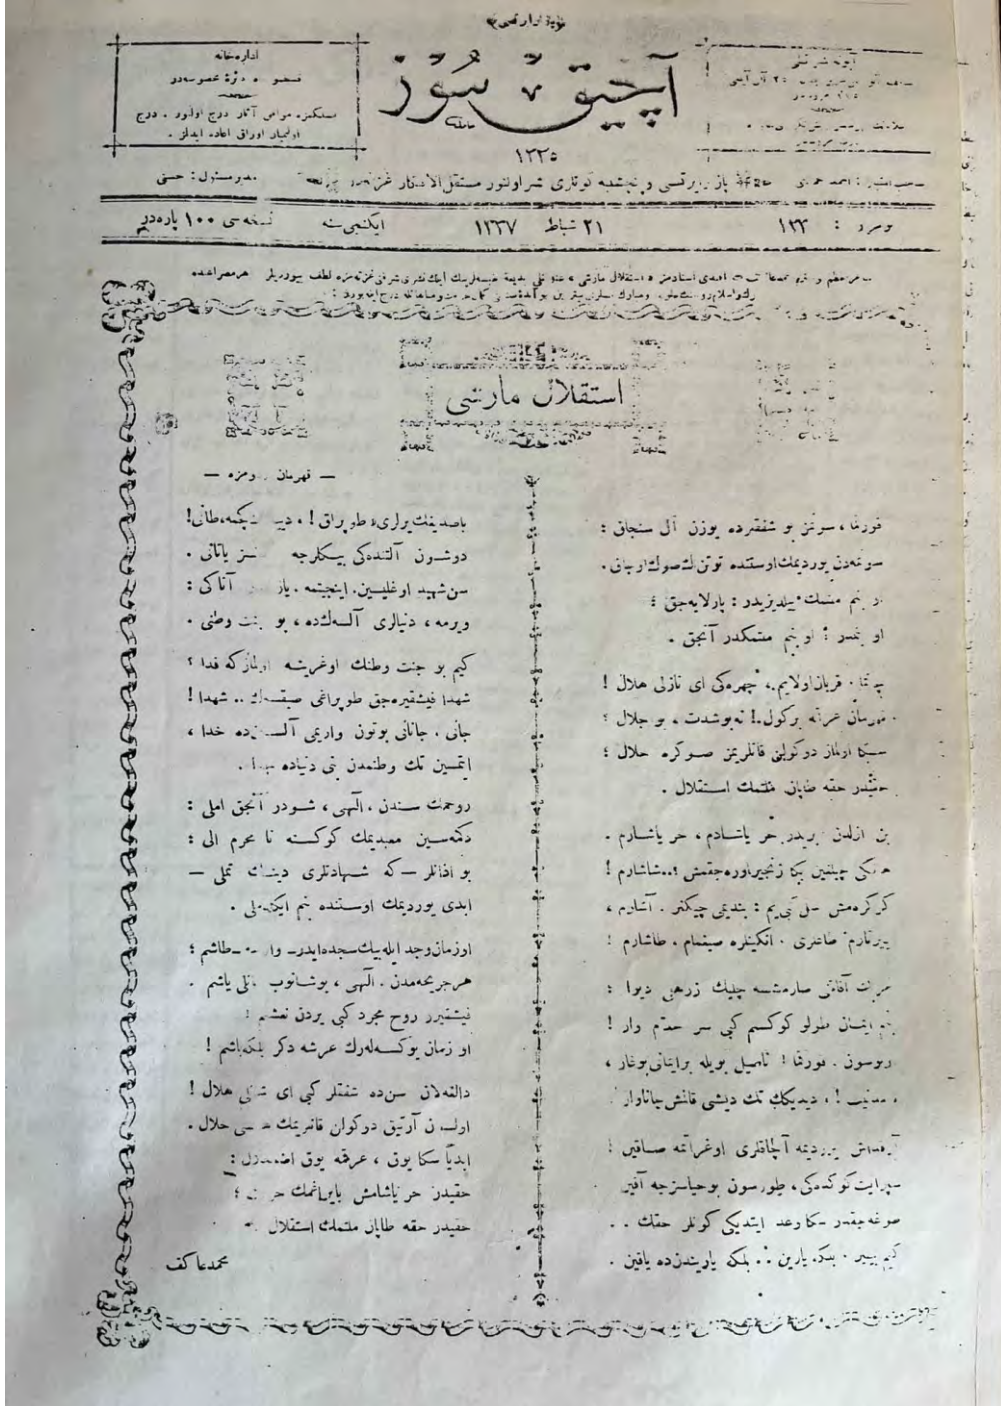 اداره‌خانه
آچیق سوز
۱۳۳۵
مدیر مسئول : حسنی
نومرو : ۱۲۳
۲۱ شباط ۱۳۳۷
ایکنجی سنه
نسخه‌سی ۱۰۰ پاره‌در
استقلال مارشی
— قهرمان اردومزه —
قورقما، سونمز بو شفقلرده یوزن آل سنجاق :
سونمه‌دن یوردیمك اوستنده توتن اك صوك اوجاق.
او بنم ملتمك ییلدیزیدر : پارلایه‌جق ؛
او بنمدر ؛ او بنم ملتمكدر آنجق .
چاتما . قربان اولایم، چهره‌كی ای نازلی هلال !
قهرمان عرقمه بر كول ! نه بو شدت ، بو جلال ؟
سكا اولماز دوكولن قانلریمز صوكره حلال ؛
حقیدر حقه طاپان ملتمك استقلال .
بن ازلدن بریدر حر یاشادم ، حر یاشارم .
هانكی چیلغین بكا زنجیر اوره‌جقمش ؟.. شاشارم !
كوكره‌مش سل كبی‌یم : بندیمی چیكنر . آشارم ،
ییرتارم طاغلری . انكینلره صیغمام . طاشارم !
غربك آفاقنی صارمشسه چلیك زرهلی دیوار :
بنم ایمان طولو كوكسم كبی سر حدم وار !
اولوسون . قورقما ! ناصیل بویله بر ایمانی بوغار ،
« مدنیت ! » دیدیكك تك دیشی قالمش جاناوار
آرقداش یوردیمه آلچاقلری اوغراتمه صاقین !
سپر ایت كوكده‌كی، طورسون بو حیاسزجه آقین
طوغه‌جقدر سكا وعد ایتدیكی كونلر حقك . .
كیم بیلیر . بلكه یارین .. بلكه یاریندن ده یاقین .
باصدیغك یرلری « طوپراق ! » دییه كچمه، طانی!
دوشون آلتنده‌كی بیكلرجه كفنسز یاتانی .
سن شهید اوغلیسین. اینجیتمه . یازیق آتاكی :
ویرمه ، دنیالری آلسه‌ك‌ده ، بو جنت وطنی .
كیم بو جنت وطنك اوغرینه اولماز كه فدا ؟
شهدا فیشقیره‌جق طوپراغی صیقسه‌ك .. شهدا !
جانی ، جانانی بوتون واریمی آلسین‌ده خدا ،
ایتمسین تك وطنمدن بنی دنیاده جدا .
روحمك سندن ، الهی ، شودر آنجق املی :
دكمه‌سین معبدیمك كوكسنه نا محرم الی :
بو اذانلر — كه شهادتلری دینك تملی —
ابدی یوردیمك اوستنده بنم ایكله‌ملی .
او زمان وجد ایله بیك سجده ایدر — وارسه — طاشم ؛
هر جریحه‌مدن . الهی ، بوشانوب قانلی یاشم .
فیشقیرر روح مجرد كبی یردن نعشم !
او زمان یوكسه‌له‌رك عرشه دكر بلكه باشم !
دالغه‌لان سن‌ده شفقلر كبی ای شانلی هلال !
اولسون آرتیق دوكولن قانلریمك هپسی حلال .
ابدیاً سكا یوق ، عرقمه یوق اضمحلال :
حقیدر حر یاشامش بایراغمك حریت ؛
حقیدر حقه طاپان ملتمك استقلال
محمد عاكف